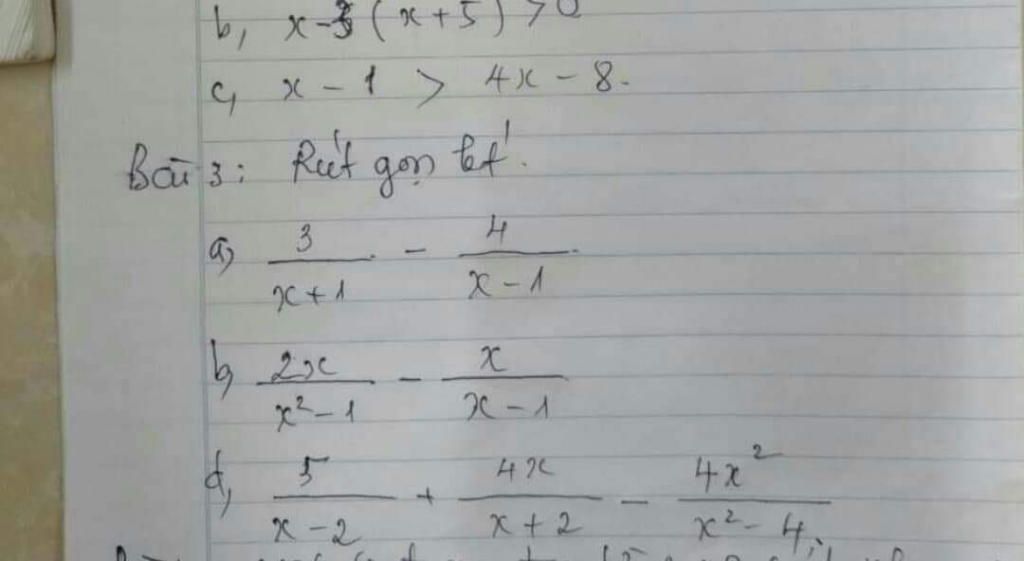 b, x - 3 (x + 5) > 0
c, x - 1 > 4x - 8.
Bài 3: Rút gọn bt'.
a, 3/(x + 1) - 4/(x - 1)
b, 2x/(x² - 1) - x/(x - 1)
d, 5/(x - 2) + 4x/(x + 2) - 4x²/(x² - 4)